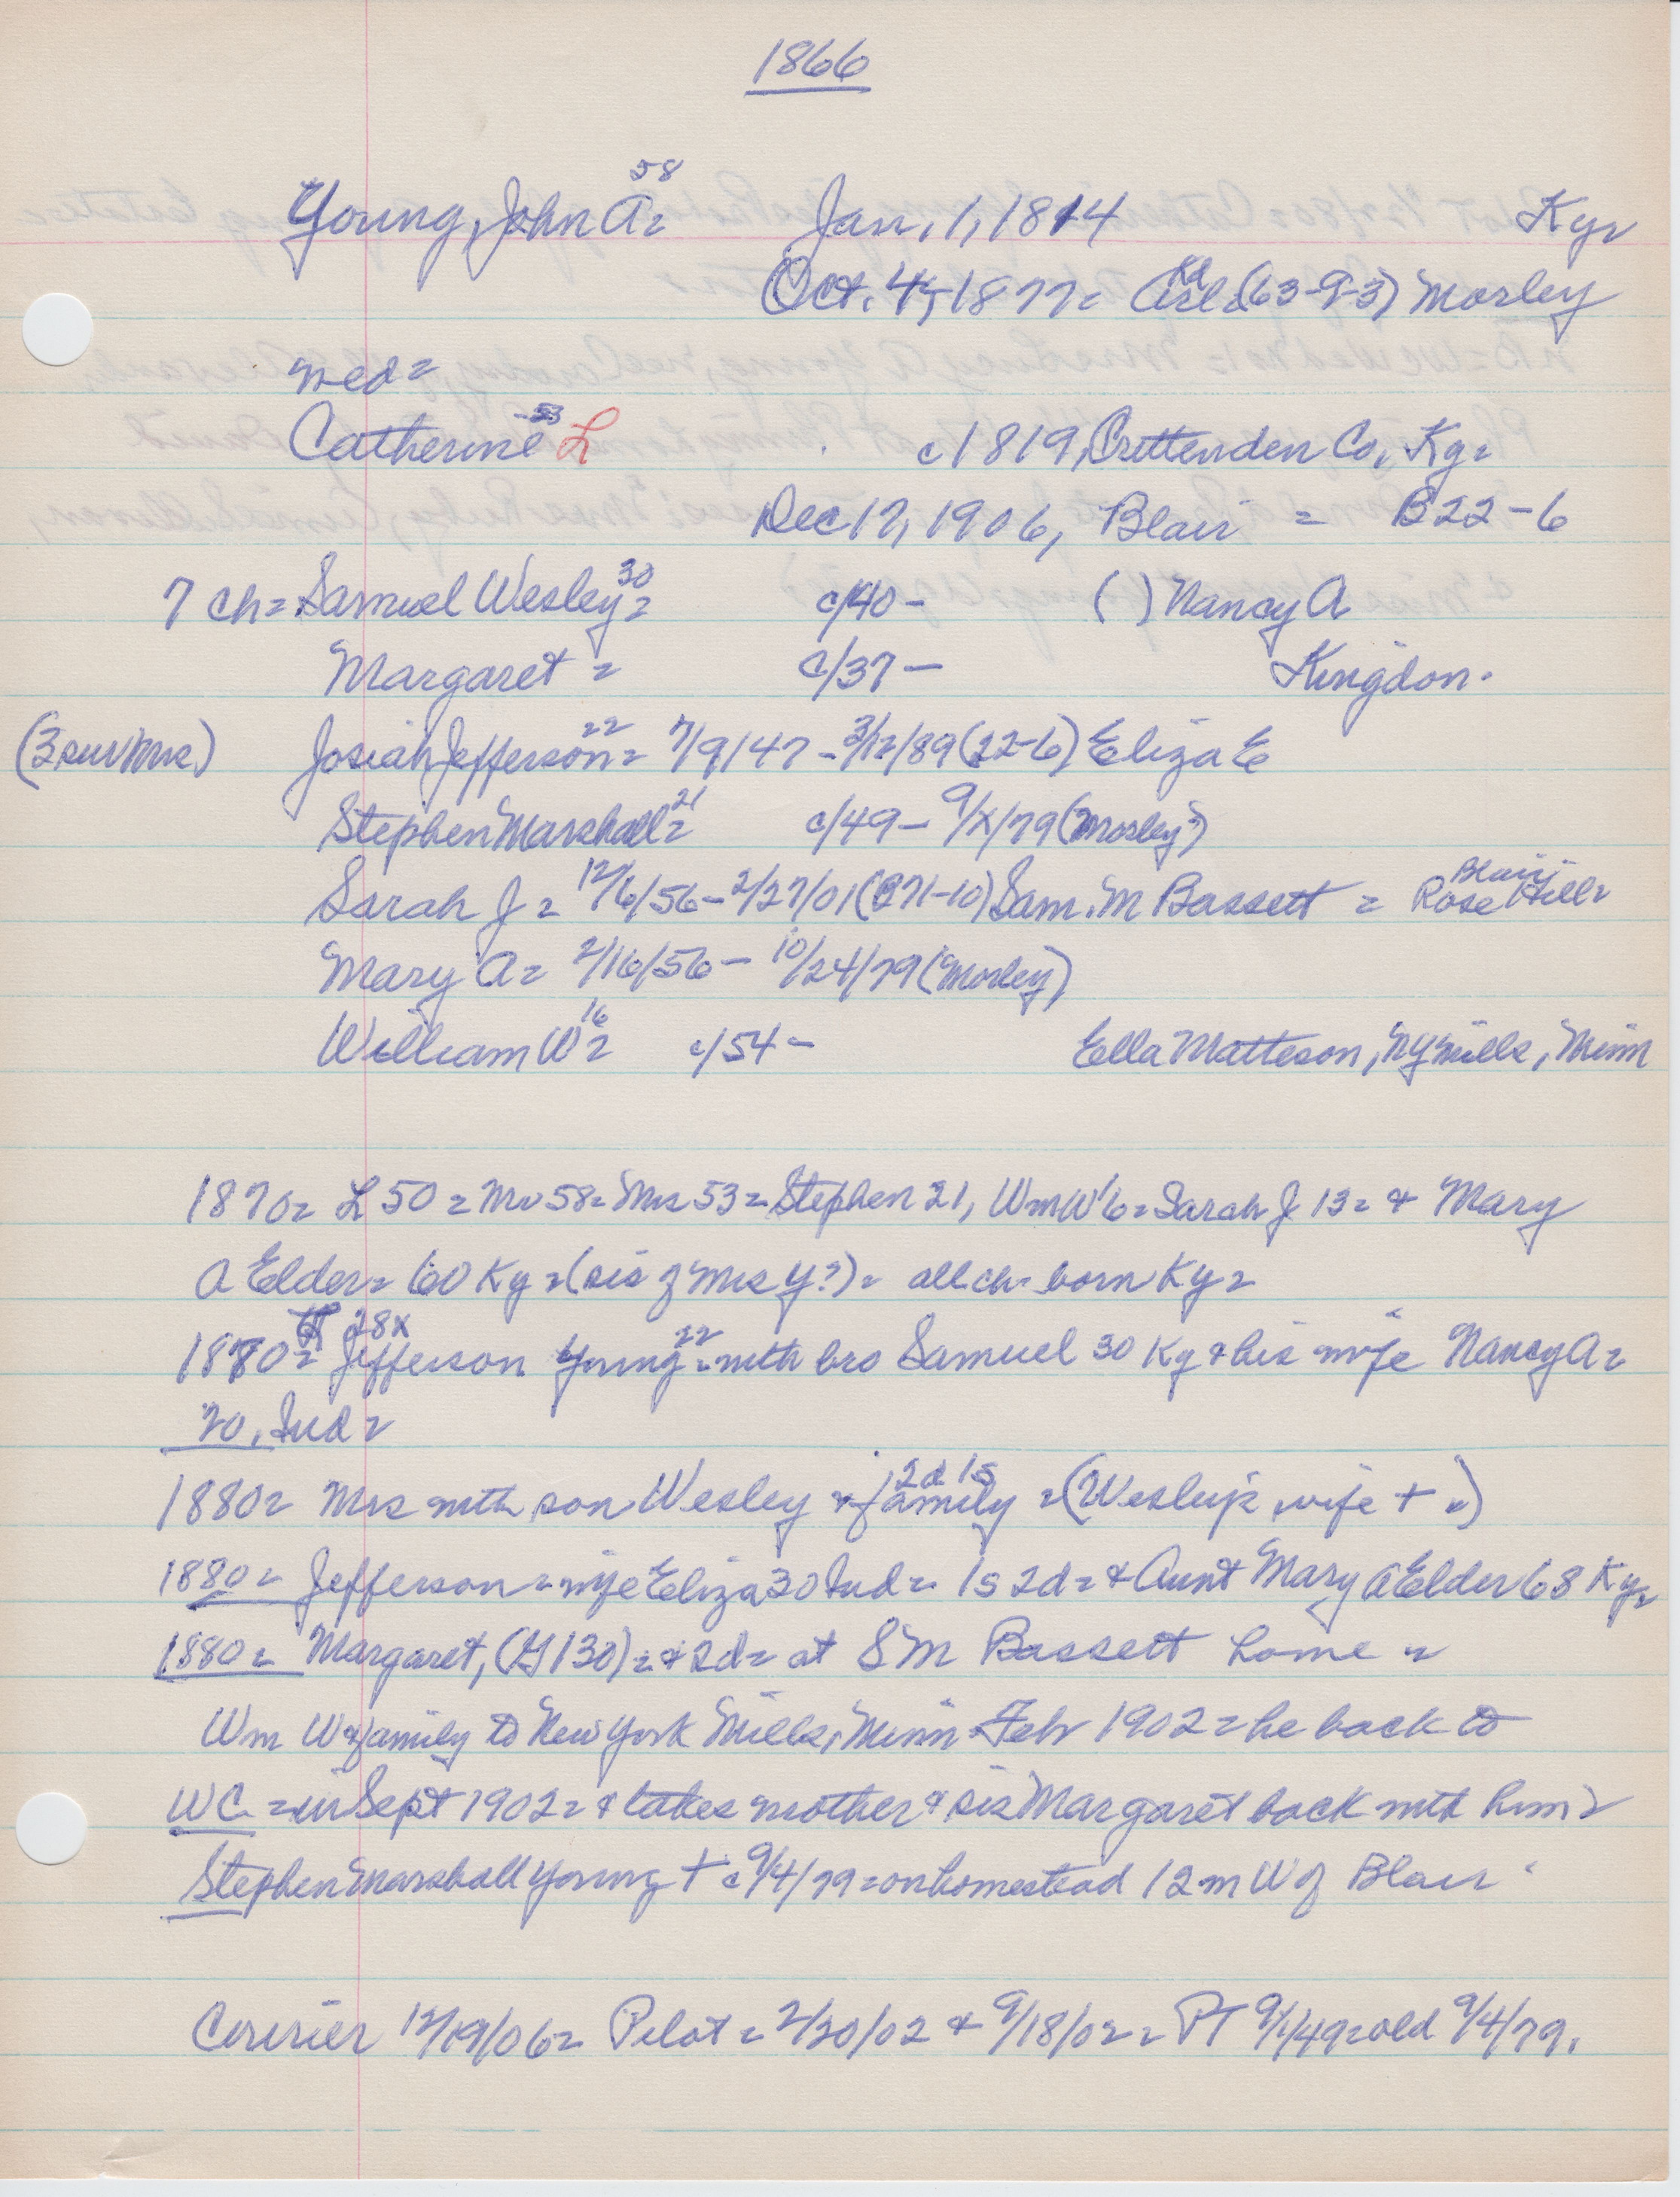 1866
58
Young, John A= Jan. 1, 1814 Ky=
Oct. 4, 1877= (63-9-3) Morley
med=
53
Catherine L c1819, Crittenden Co, Ky=
Dec 17, 1906, Blair = B22-6
7 ch= Samuel Wesley 30= c/40- ( ) Nancy A
Margaret = c/37- Kingdon.
(3 survive.) Josiah Jefferson 22= 7/9/47-3/12/89(22-6) Eliza E
Stephen Marshall 21= c/49- 9/x/79(Morley?)
Sarah J= 12/6/56-2/27/01(B71-10) Sam. M Bassett = Blair, Rose Hill=
Mary A= 2/16/56- 10/24/79(Morley)
William W 16= c/54- Ella Matteson, NY Mills, Minn
1870= L 50= Mr 58= Mrs 53= Stephen 21, Wm W 16= Sarah J 13= & Mary
A Elder= 60 Ky=(sis of Mrs Y?)= all ch- born Ky=
28x
1870= Jefferson Young 22= with bro Samuel 30 Ky & his wife Nancy A=
20, Ind=
2d 1s
1880= Mrs with son Wesley & family =(Wesley's wife + =)
1880= Jefferson= wife Eliza 30 Ind= 1s 2d= & Aunt Mary A Elder 68 Ky=
1880= Margaret, (Y 130)= & 2d= at S M Bassett home =
Wm W & family to New York Mills, Minn Feb 1902= he back to
WC =in Sept 1902= & takes mother & sis Margaret back with him=
Stephen Marshall Young + c 9/4/79=on homestead 12 m W of Blair
Courier 12/19/06= Pilot= 2/20/02 & 9/18/02= PT 9/1/49=old 9/4/79.